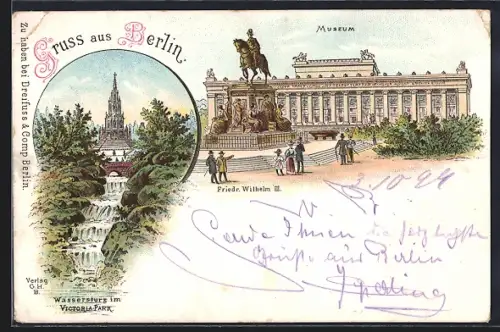 Gruss aus Berlin.
MUSEUM
Zu haben bei Dreifuss & Comp Berlin.
Friedr. Wilhelm III.
3.10.99
Sende Ihnen die
Grüße aus Berlin
Verlag
G.H.
B.
Wassersturz im
VICTORIA-PARK.